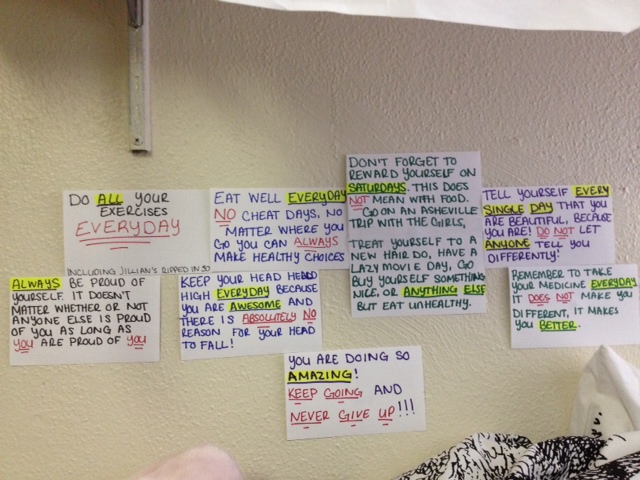 DO ALL YOUR
EXERCISES
EVERYDAY
INCLUDING JILLIAN'S RIPPED IN 30
EAT WELL EVERYDAY
NO CHEAT DAYS, NO
MATTER WHERE YOU
GO YOU CAN ALWAYS
MAKE HEALTHY CHOICES
DON'T FORGET TO
REWARD YOURSELF ON
SATURDAYS. THIS DOES
NOT MEAN WITH FOOD.
GO ON AN ASHEVILLE
TRIP WITH THE GIRLS,
TREAT YOURSELF TO A
NEW HAIR DO, HAVE A
LAZY MOVIE DAY, GO
BUY YOURSELF SOMETHING
NICE, OR ANYTHING ELSE
BUT EAT UNHEALTHY.
TELL YOURSELF EVERY
SINGLE DAY THAT YOU
ARE BEAUTIFUL, BECAUSE
YOU ARE! DO NOT LET
ANYONE TELL YOU
DIFFERENTLY!
ALWAYS BE PROUD OF
YOURSELF. IT DOESN'T
MATTER WHETHER OR NOT
ANYONE ELSE IS PROUD
OF YOU AS LONG AS
YOU ARE PROUD OF YOU
KEEP YOUR HEAD HELD
HIGH EVERYDAY BECAUSE
YOU ARE AWESOME AND
THERE IS ABSOLUTELY NO
REASON FOR YOUR HEAD
TO FALL!
REMEMBER TO TAKE
YOUR MEDICINE EVERYDAY
IT DOES NOT MAKE YOU
DIFFERENT, IT MAKES
YOU BETTER.
YOU ARE DOING SO
AMAZING!
KEEP GOING AND
NEVER GIVE UP!!!